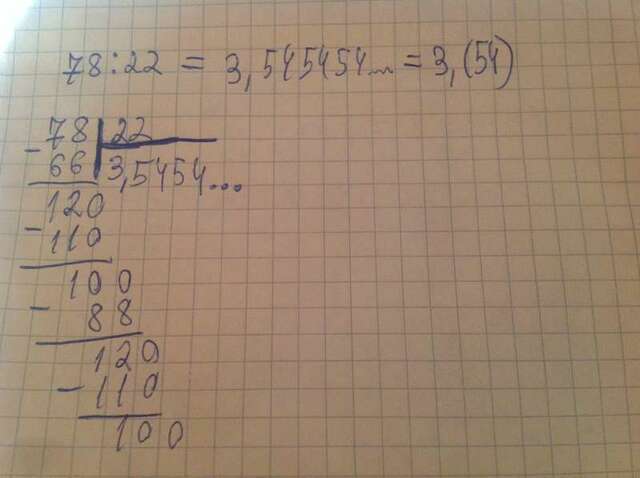 78:22 = 3,545454... = 3,(54)
- 78 22
66 3,5454...
120
- 110
100
- 88
120
- 110
100